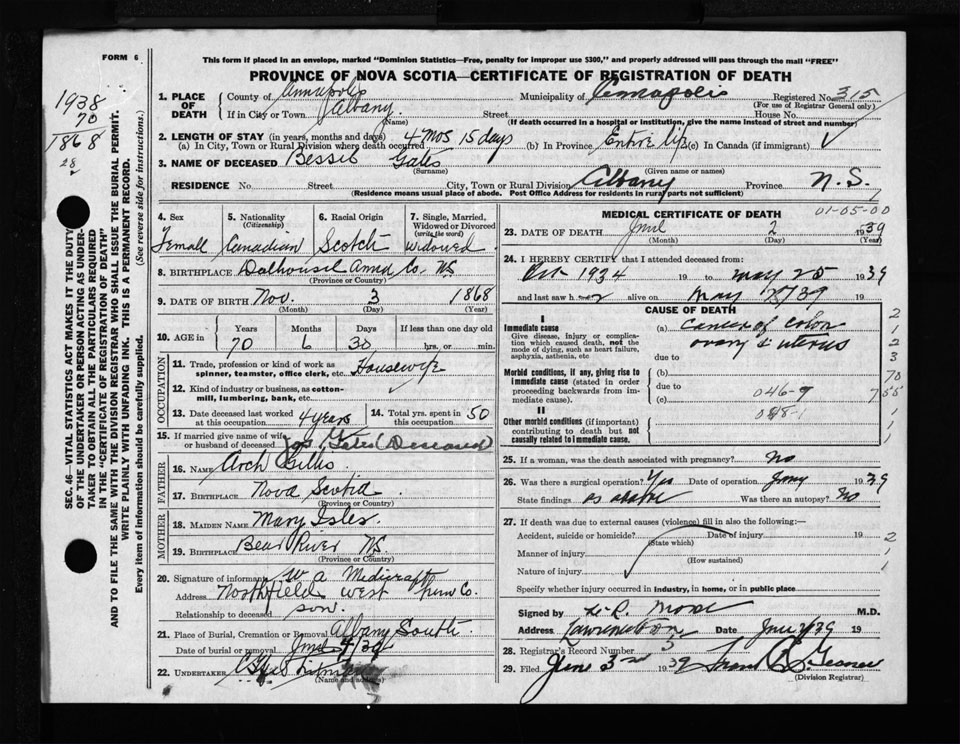 FORM 6
This form if placed in an envelope, marked "Dominion Statistics—Free, penalty for improper use $300," and properly addressed will pass through the mail "FREE"
PROVINCE OF NOVA SCOTIA—CERTIFICATE OF REGISTRATION OF DEATH
1938
70
1868
28
2
SEC. 46—VITAL STATISTICS ACT MAKES IT THE DUTY
OF THE UNDERTAKER OR PERSON ACTING AS UNDER-
TAKER TO OBTAIN ALL THE PARTICULARS REQUIRED
IN THE "CERTIFICATE OF REGISTRATION OF DEATH"
AND TO FILE THE SAME WITH THE DIVISION REGISTRAR WHO SHALL ISSUE THE BURIAL PERMIT.
WRITE PLAINLY WITH UNFADING INK. THIS IS A PERMANENT RECORD.
Every item of information should be carefully supplied. (See reverse side for instructions.)
1. PLACE OF DEATH County of Annapolis Municipality of Annapolis Registered No. 315
(For use of Registrar General only)
If in City or Town Albany Street House No.
(Name) (If death occurred in a hospital or institution, give the name instead of street and number)
2. LENGTH OF STAY (in years, months and days)
(a) In City, Town or Rural Division where death occurred 4 mos 15 days (b) In Province Entire life (c) In Canada (if immigrant)
3. NAME OF DECEASED Bessie Gates
(Surname) (Given name or names)
RESIDENCE No. Street City, Town or Rural Division Albany Province N.S.
(Residence means usual place of abode. Post Office Address for residents in rural parts not sufficient)
4. Sex 5. Nationality (Citizenship) 6. Racial Origin 7. Single, Married, Widowed or Divorced (write the word)
Female Canadian Scotch widowed
8. BIRTHPLACE Dalhousie Anna Co. N.S.
(Province or Country)
9. DATE OF BIRTH Nov. 3 1868
(Month) (Day) (Year)
10. AGE Years Months Days If less than one day
70 6 30 hrs. or min.
OCCUPATION
11. Trade, profession or kind of work as spinner, teamster, office clerk, etc. Housewife
12. Kind of industry or business, as cotton-mill, lumbering, bank, etc.
13. Date deceased last worked at this occupation 4 years 14. Total yrs. spent in 50
15. If married give name of wife or husband of deceased Jos Gates Deceased
FATHER
16. NAME Arch Gillis
17. BIRTHPLACE Nova Scotia
(Province or Country)
MOTHER
18. MAIDEN NAME Mary Isles
19. BIRTHPLACE Bear River N.S.
(Province or Country)
20. Signature of informant W A Medicraft
Address Northfield west Co.
Relationship to deceased son.
21. Place of Burial, Cremation or Removal Albany South
Date of burial or removal 4/39
22. UNDERTAKER
(Name and address)
MEDICAL CERTIFICATE OF DEATH
01-05-00
23. DATE OF DEATH June 2 1939
(Month) (Day) (Year)
24. I HEREBY CERTIFY that I attended deceased from:
Oct 1934 19 to may 25 1939
and last saw her alive on May 19
CAUSE OF DEATH
I
Immediate cause
Give disease, injury or complication which caused death, not the mode of dying, such as heart failure, asphyxia, asthenia, etc
(a) cancer of colon
ovary & uterus
due to
Morbid conditions, if any, giving rise to immediate cause (stated in order proceeding backwards from immediate cause).
(b)
due to
(c) 046-9
II
Other morbid conditions (if important) contributing to death but not causally related to immediate cause.
25. If a woman, was the death associated with pregnancy? No
26. Was there a surgical operation? Yes Date of operation 1939
State findings as above Was there an autopsy? No
27. If death was due to external causes (violence) fill in also the following:—
Accident, suicide or homicide? Date of injury 19
(State which)
Manner of injury
(How sustained)
Nature of injury
Specify whether injury occurred in industry, in home, or in public place
Signed by Morse M.D.
Address Lawrencetown Date June 19
28. Registrar's Record Number 3
29. Filed June 3rd 1939
(Division Registrar)